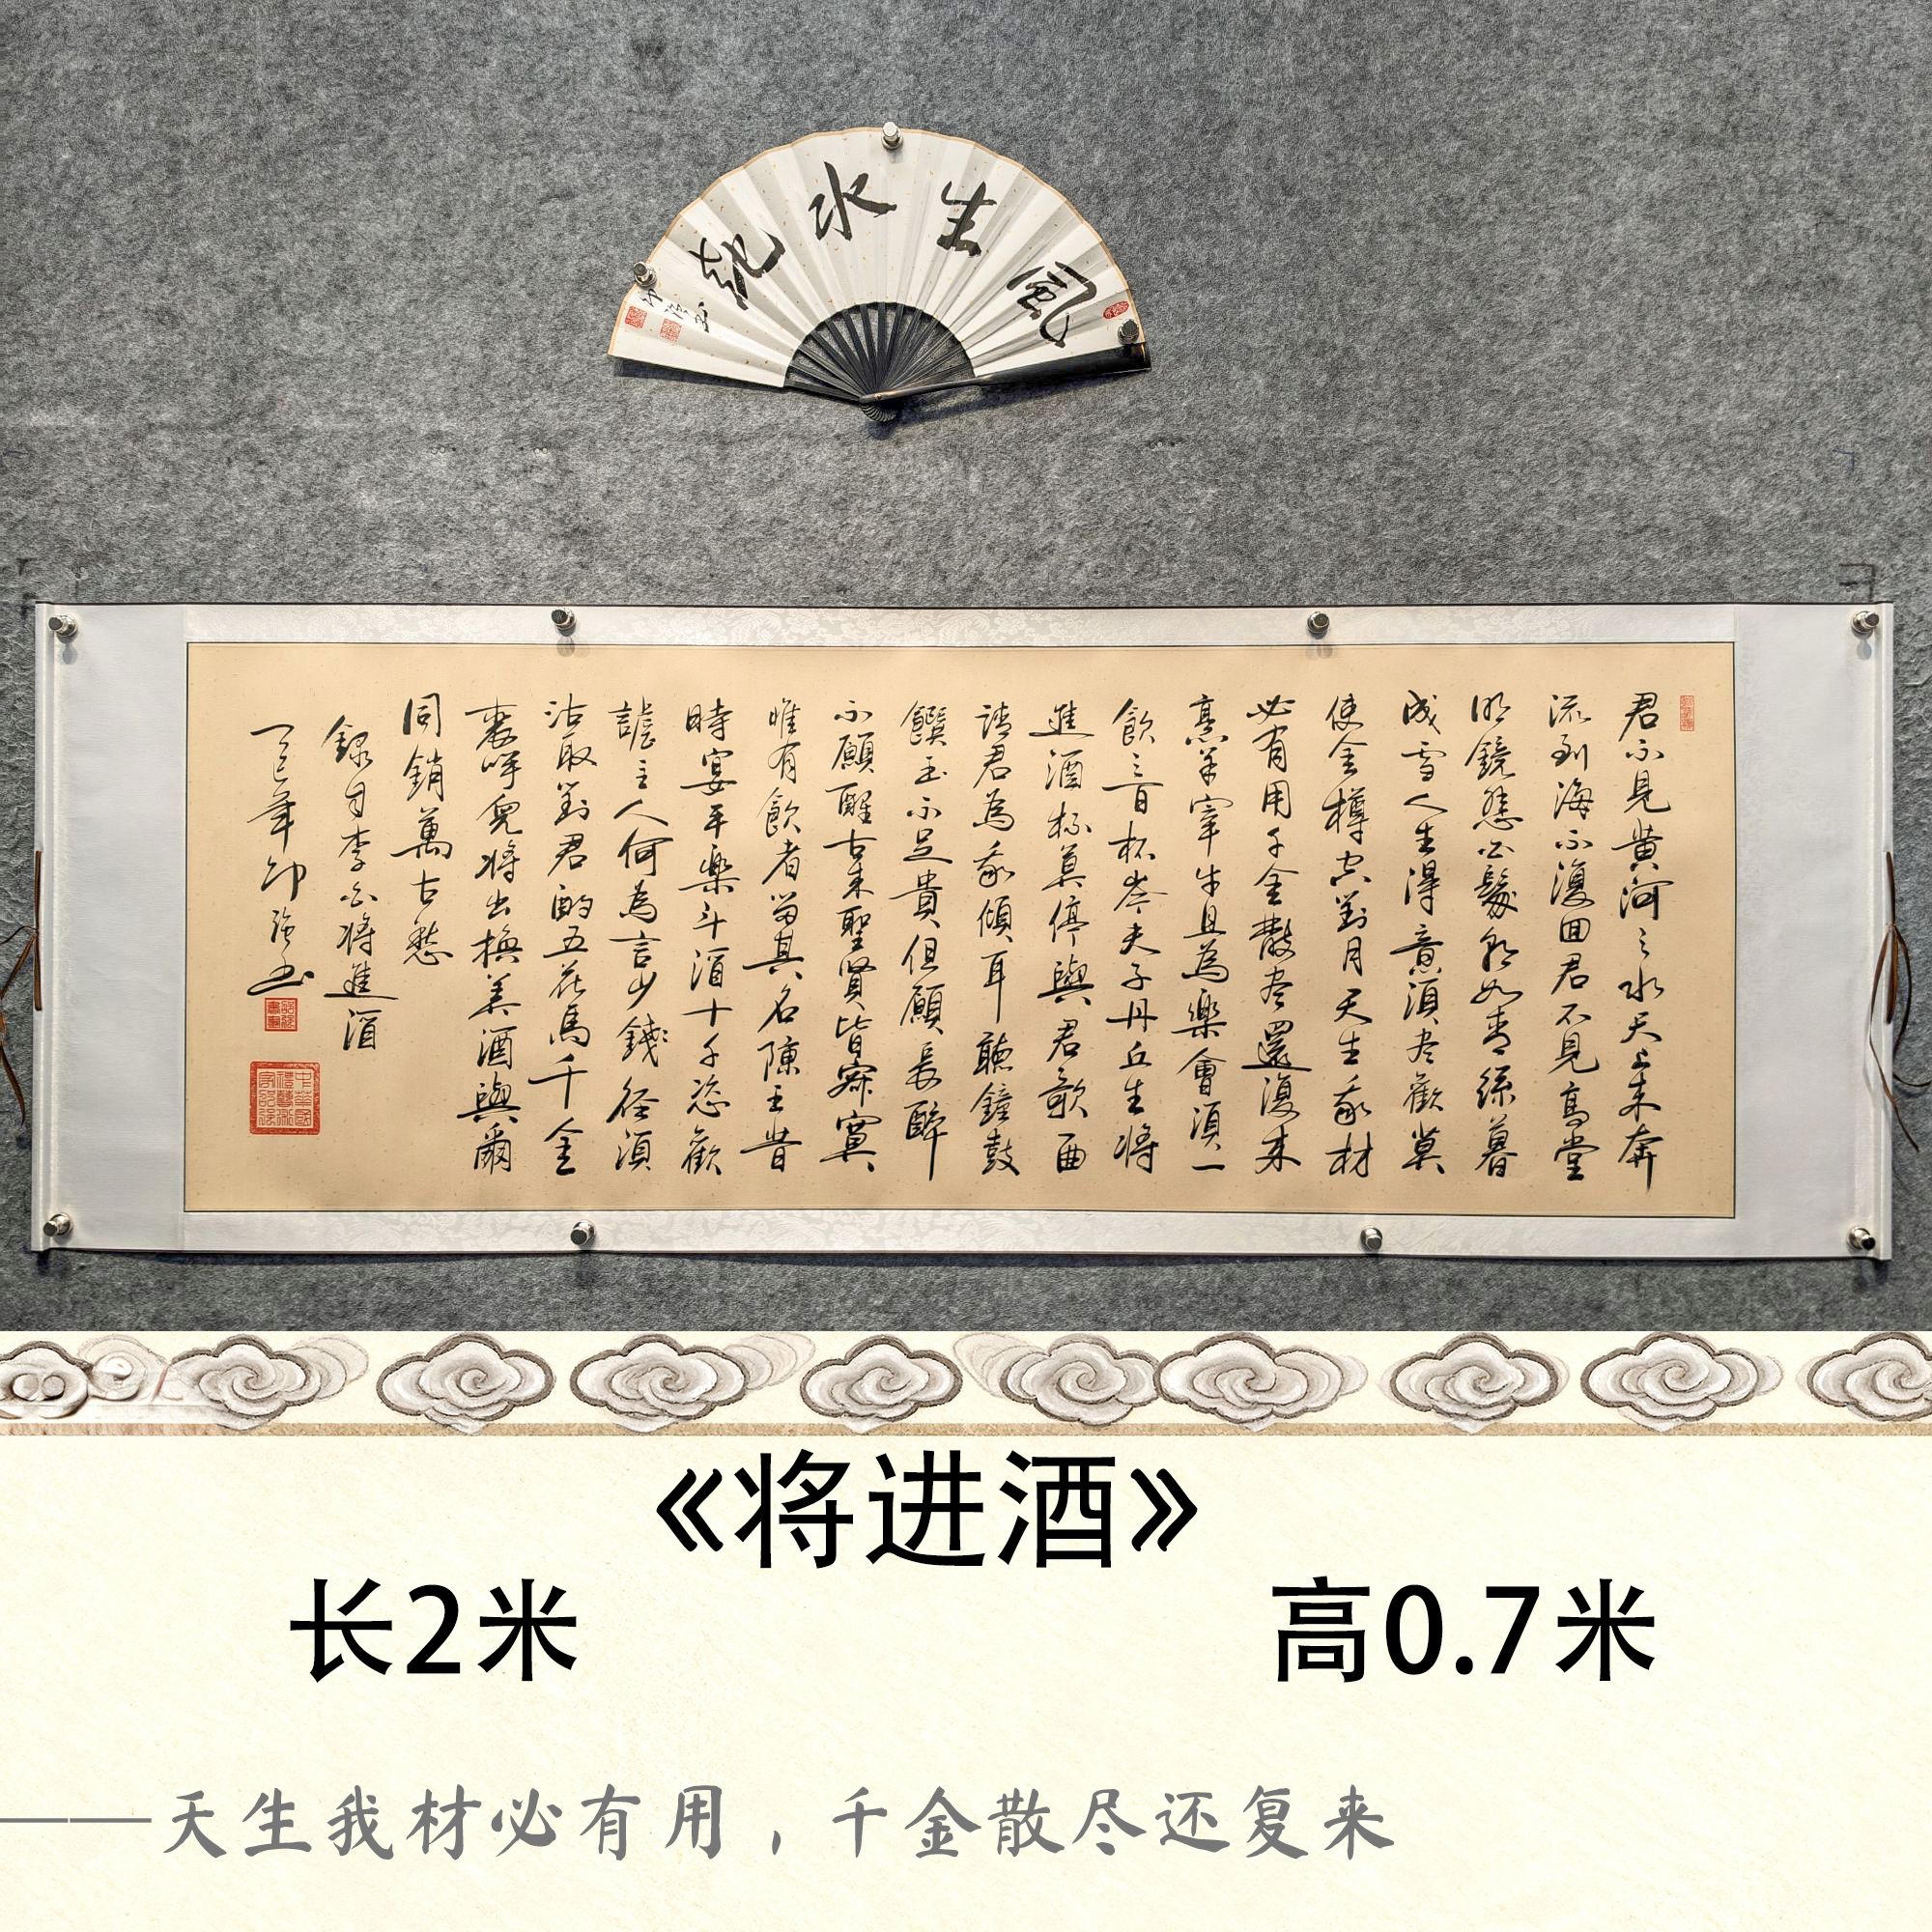 風生水起
君不見黄河之水天上来奔
流到海不復回君不見高堂
明鏡悲白髮朝如青絲暮
成雪人生得意須尽歡莫
使金樽空對月天生我材
必有用千金散尽還復来
烹羊宰牛且為樂會須一
飲三百杯岑夫子丹丘生将
進酒杯莫停與君歌曲
請君為我傾耳聽鐘鼓
饌玉不足貴但願長醉
不願醒古来聖賢皆寂寞
惟有飲者留其名陳王昔
時宴平樂斗酒十千恣歡
謔主人何為言少錢径須
沽取對君酌五花馬千金
裘呼兒将出換美酒與爾
同銷萬古愁
錄自李白将進酒
乙巳年印强书
《将进酒》
长2米 高0.7米
——天生我材必有用，千金散尽还复来